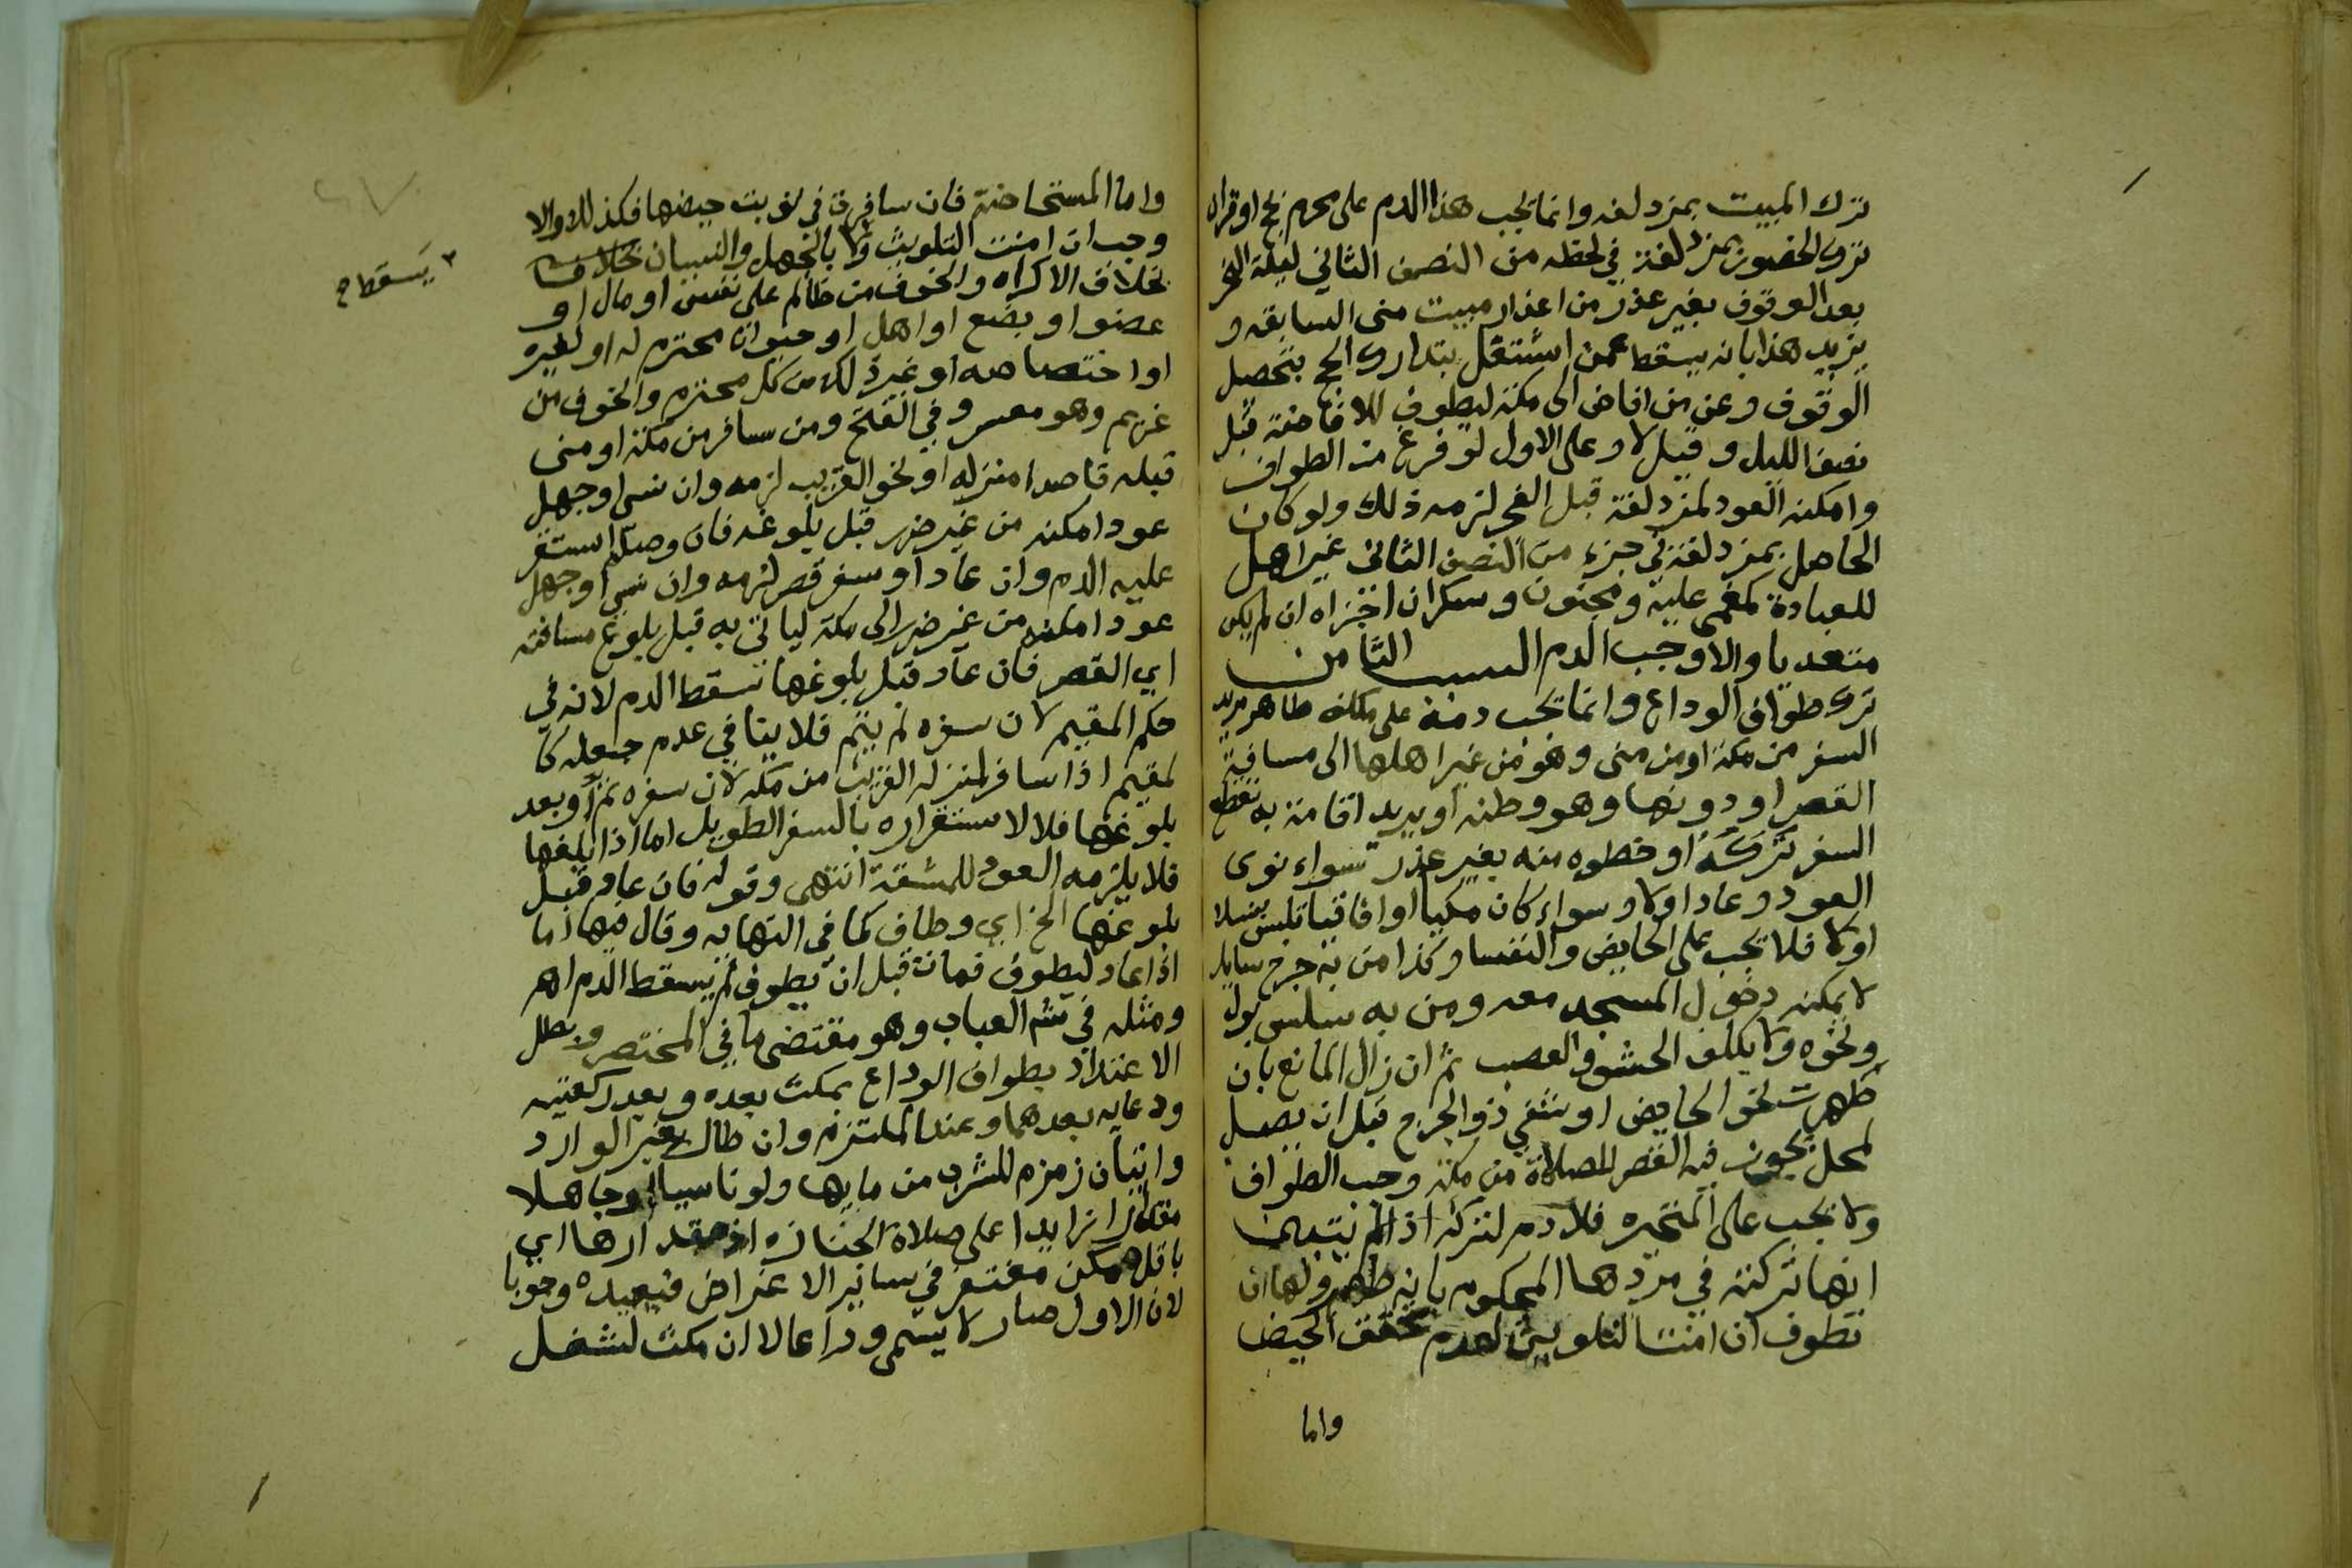 ترك المبيت بمزدلفه وانما يجب هذا الدم على محرم بحج او قران
ترك الحضور بمزدلفة في لحظه من النصف الثاني ليلة النحر
بعد الوقوف بغير عذر من اعذار مبيت منى السابقه و
يزيد هذا بانه يسقط عمن اشتغل بتدارك الحج بتحصيل
الوقوف وعن من افاض الى مكة ليطوف للافاضة قبل
نصف الليل وقيل لا وعلى الاول لو فرغ من الطواف
وامكنه العود لمزدلفة قبل الفجر لزمه ذلك ولو كان
الحاصل بمزدلفة في جزء من النصف الثاني غير اهل
للعبادة كمغمى عليه ومجنون وسكران اجزاه ان لم يكن
متعديا والا وجب الدم السبب الثامن
ترك طواف الوداع وانما يجب دمه على مكلف طاهر مريد
السفر من مكة او من منى وهو من غير اهلها الى مسافة
القصر او دونها وهو وطنه او يريد اقامة به تقطع
السفر تركه او خطوه منه بغير عذر سواء نوى
العود وعاد اولا وسواء كان مكيا او افاقيا تلبس بنسك
اولا فلا يجب على الحايض والنفسا وكذا من به جرح سايل
لا يمكنه دخول المسجد معه ومن به سلس بول
ونحوه ولا يكلف الحشو والعصب ثم ان زال المانع بان
طهرت نحو الحايض او شفي ذو الجرح قبل ان يصل
لمحل يجوز فيه القصر للصلاة من مكة وجب الطواف
ولا يجب على المتحيره فلا دم لتركه اذا لم يتبين
انها تركته في مردها المحكوم بانه طهر ولها ان
تطوف ان امنت التلويث لعدم تحقق الحيض
واما
واما المستحاضة فان سافرت في نوبت حيضها فكذلك والا
وجب ان امنت التلويث ولا بالجهل والنسيان بخلاف
يسقط صح
بخلاف الاكراه والخوف من ظالم على نفس او مال او
عضو او بضع او اهل او حيوان محترم له او لغيره
او اختصاصه او غير ذلك من كل محترم والخوف من
غريم وهو معسر وفي الفتح ومن سافر من مكة او منى
قبله قاصدا منزله او نحو القريب لزمه وان نسى او جهل
عودا مكنه من غير ضرر قبل بلوغه فان وصله استقر
عليه الدم وان عاد او سفر قصر لزمه وان نسي او جهل
عودا مكنه من غير ضرر الى مكة لياتي به قبل بلوغ مسافته
اي القصر فان عاد قبل بلوغها سقط الدم لانه في
حكم المقيم لان سفره لم يتم فلا ينافي عدم جعله كا
لمقيم اذا سافر لمنزله القريب من مكة لان سفره تم او بعد
بلوغها فلا لاستقراره بالسفر الطويل اما اذا بلغها
فلا يلزمه العود للمشقة انتهى وقوله فان عاد قبل
بلوغها الخ اي وطاف كما في النهايه وقال فيها اما
اذا عاد ليطوف فمات قبل ان يطوف لم يسقط الدم اهـ
ومثله في شم العباب وهو مقتضى ما في المختصر ويطل
الاعتداد بطواف الوداع بمكث بعده وبعد ركعتيه
ودعايه بعدهما وعند الملتزم وان طال بغير الوارد
واتيان زمزم للشرب من مايها ولو ناسيا او جاهلا
مقدارا زايدا على صلاة الجنازه اذ مقدارها اي
باقل ممكن مغتفر في ساير الاغراض فيعيده وجوبا
لان الاول صار لا يسمى وداعا الا ان مكث لشغل